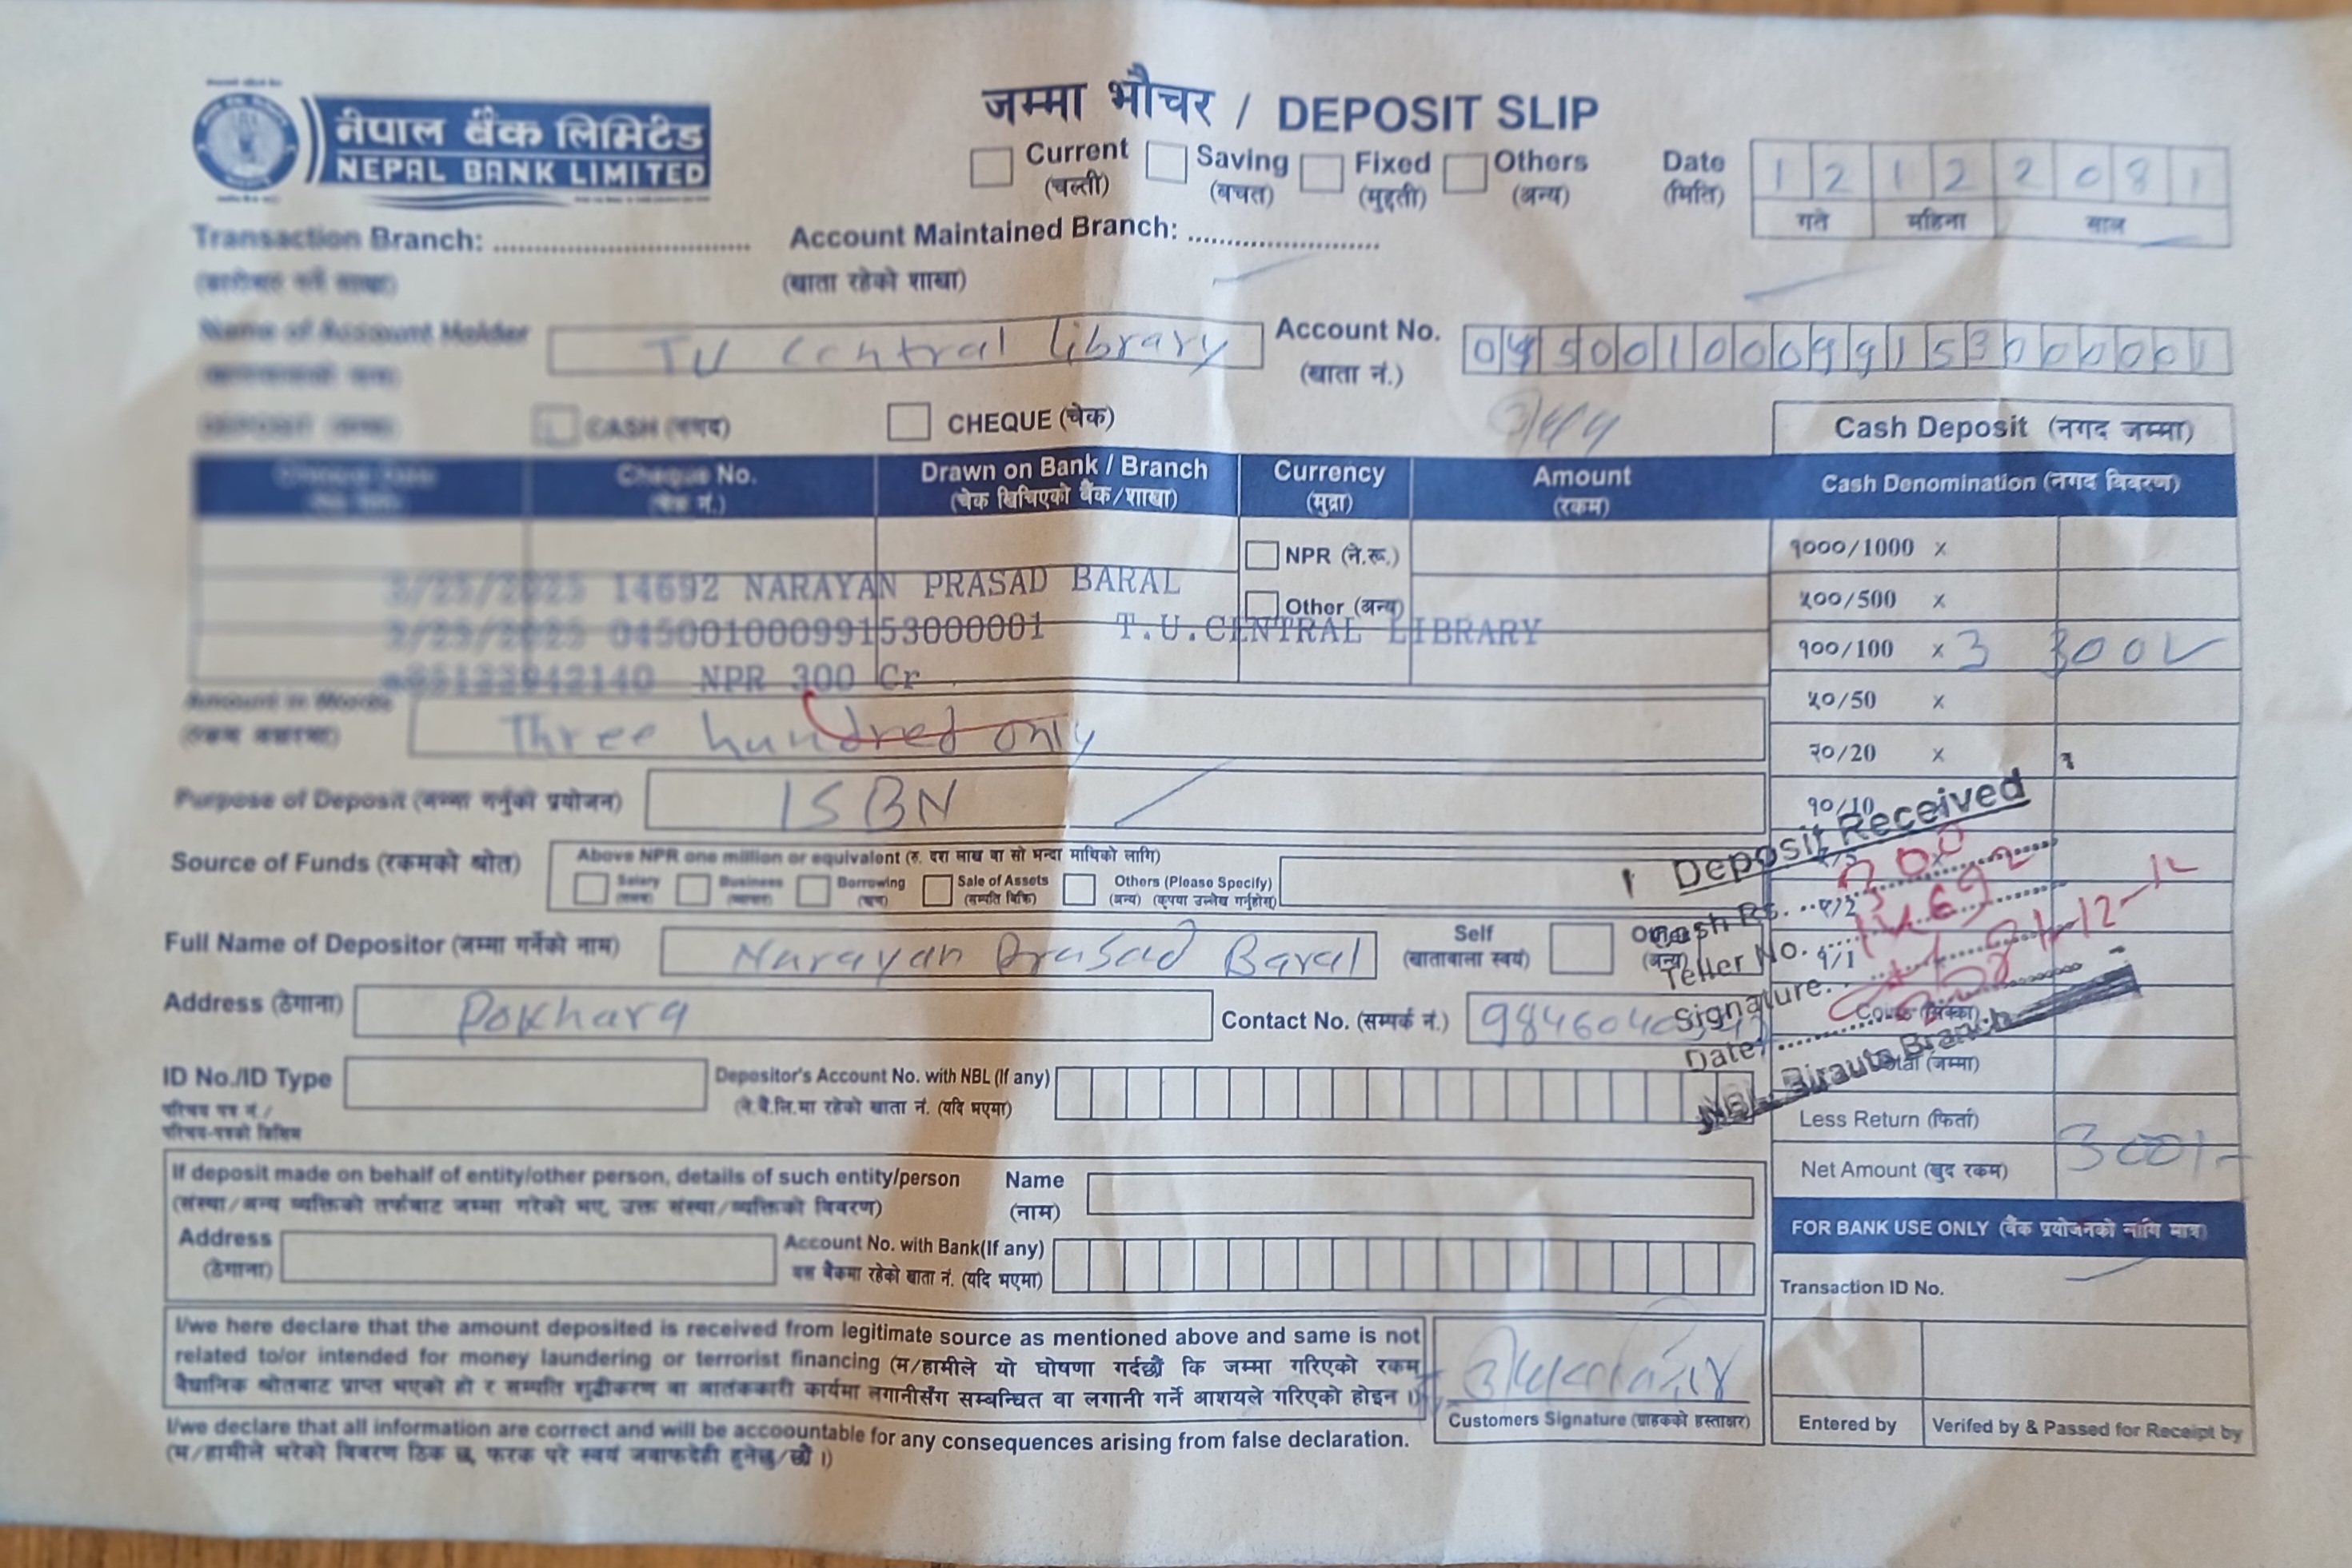 नेपाल बैंक लिमिटेड
NEPAL BANK LIMITED
जम्मा भौचर / DEPOSIT SLIP
Current Saving Fixed Others
(चल्ती) (बचत) (मुद्दती) (अन्य)
Date 1 2 1 2 2 0 8 1
(मिति) गते महिना साल
Transaction Branch: Account Maintained Branch:
(कारोबार गर्ने शाखा) (खाता रहेको शाखा)
Name of Account Holder TU Central library Account No. 04500100099153000001
(खाता नं.)
CASH (नगद) CHEQUE (चेक) Cash Deposit (नगद जम्मा)
Cheque No. Drawn on Bank / Branch Currency Amount Cash Denomination (नगद विवरण)
(चेक नं.) (चेक खिचिएको बैंक/शाखा) (मुद्रा) (रकम)
NPR (ने.रू.) १०००/1000 x
3/25/2025 14692 NARAYAN PRASAD BARAL
Other (अन्य) ५००/500 x
3/25/2025 04500100099153000001 T.U.CENTRAL LIBRARY
१००/100 x 3 300
NPR 300 Cr
Amount in Words Three hundred only ५०/50 x
२०/20 x
Purpose of Deposit (जम्मा गर्नुको प्रयोजन) ISBN १०/10
Source of Funds (रकमको श्रोत) Above NPR one million or equivalent (रु. दश लाख वा सो भन्दा माथिको लागि)
Salary Business Borrowing Sale of Assets Others (Please Specify)
(ऋण) (सम्पति बिक्रि) (अन्य) (कृपया उल्लेख गर्नुहोस्)
Deposit Received
Cash Rs. 300
Teller No. 14692
Signature.
Date: 2081-12-12
NBL Birauta Branch
Full Name of Depositor (जम्मा गर्नेको नाम) Narayan Prasad Baral Self
(खातावाला स्वयं) (अन्य) १/1
Address (ठेगाना) Pokhara Contact No. (सम्पर्क नं.) 984604
ID No./ID Type Depositor's Account No. with NBL (If any) (जम्मा)
परिचय पत्र नं./ (ने.बै.लि.मा रहेको खाता नं. (यदि भएमा)
परिचय-पत्रको किसिम
Less Return (फिर्ता)
Net Amount (खुद रकम) 300/-
If deposit made on behalf of entity/other person, details of such entity/person Name
(संस्था/अन्य व्यक्तिको तर्फबाट जम्मा गरेको भए, उक्त संस्था/व्यक्तिको विवरण) (नाम)
FOR BANK USE ONLY (बैंक प्रयोजनको लागि मात्र)
Address Account No. with Bank(If any)
(ठेगाना) यस बैंकमा रहेको खाता नं. (यदि भएमा)
Transaction ID No.
I/we here declare that the amount deposited is received from legitimate source as mentioned above and same is not
related to/or intended for money laundering or terrorist financing (म/हामीले यो घोषणा गर्दछौं कि जम्मा गरिएको रकम
वैधानिक श्रोतबाट प्राप्त भएको हो र सम्पति शुद्धीकरण वा आतंककारी कार्यमा लगानीसँग सम्बन्धित वा लगानी गर्ने आशयले गरिएको होइन ।)
Customers Signature (ग्राहकको हस्ताक्षर) Entered by Verifed by & Passed for Receipt by
I/we declare that all information are correct and will be accoountable for any consequences arising from false declaration.
(म/हामीले भरेको विवरण ठिक छ, फरक परे स्वयं जवाफदेही हुनेछु/छौं ।)